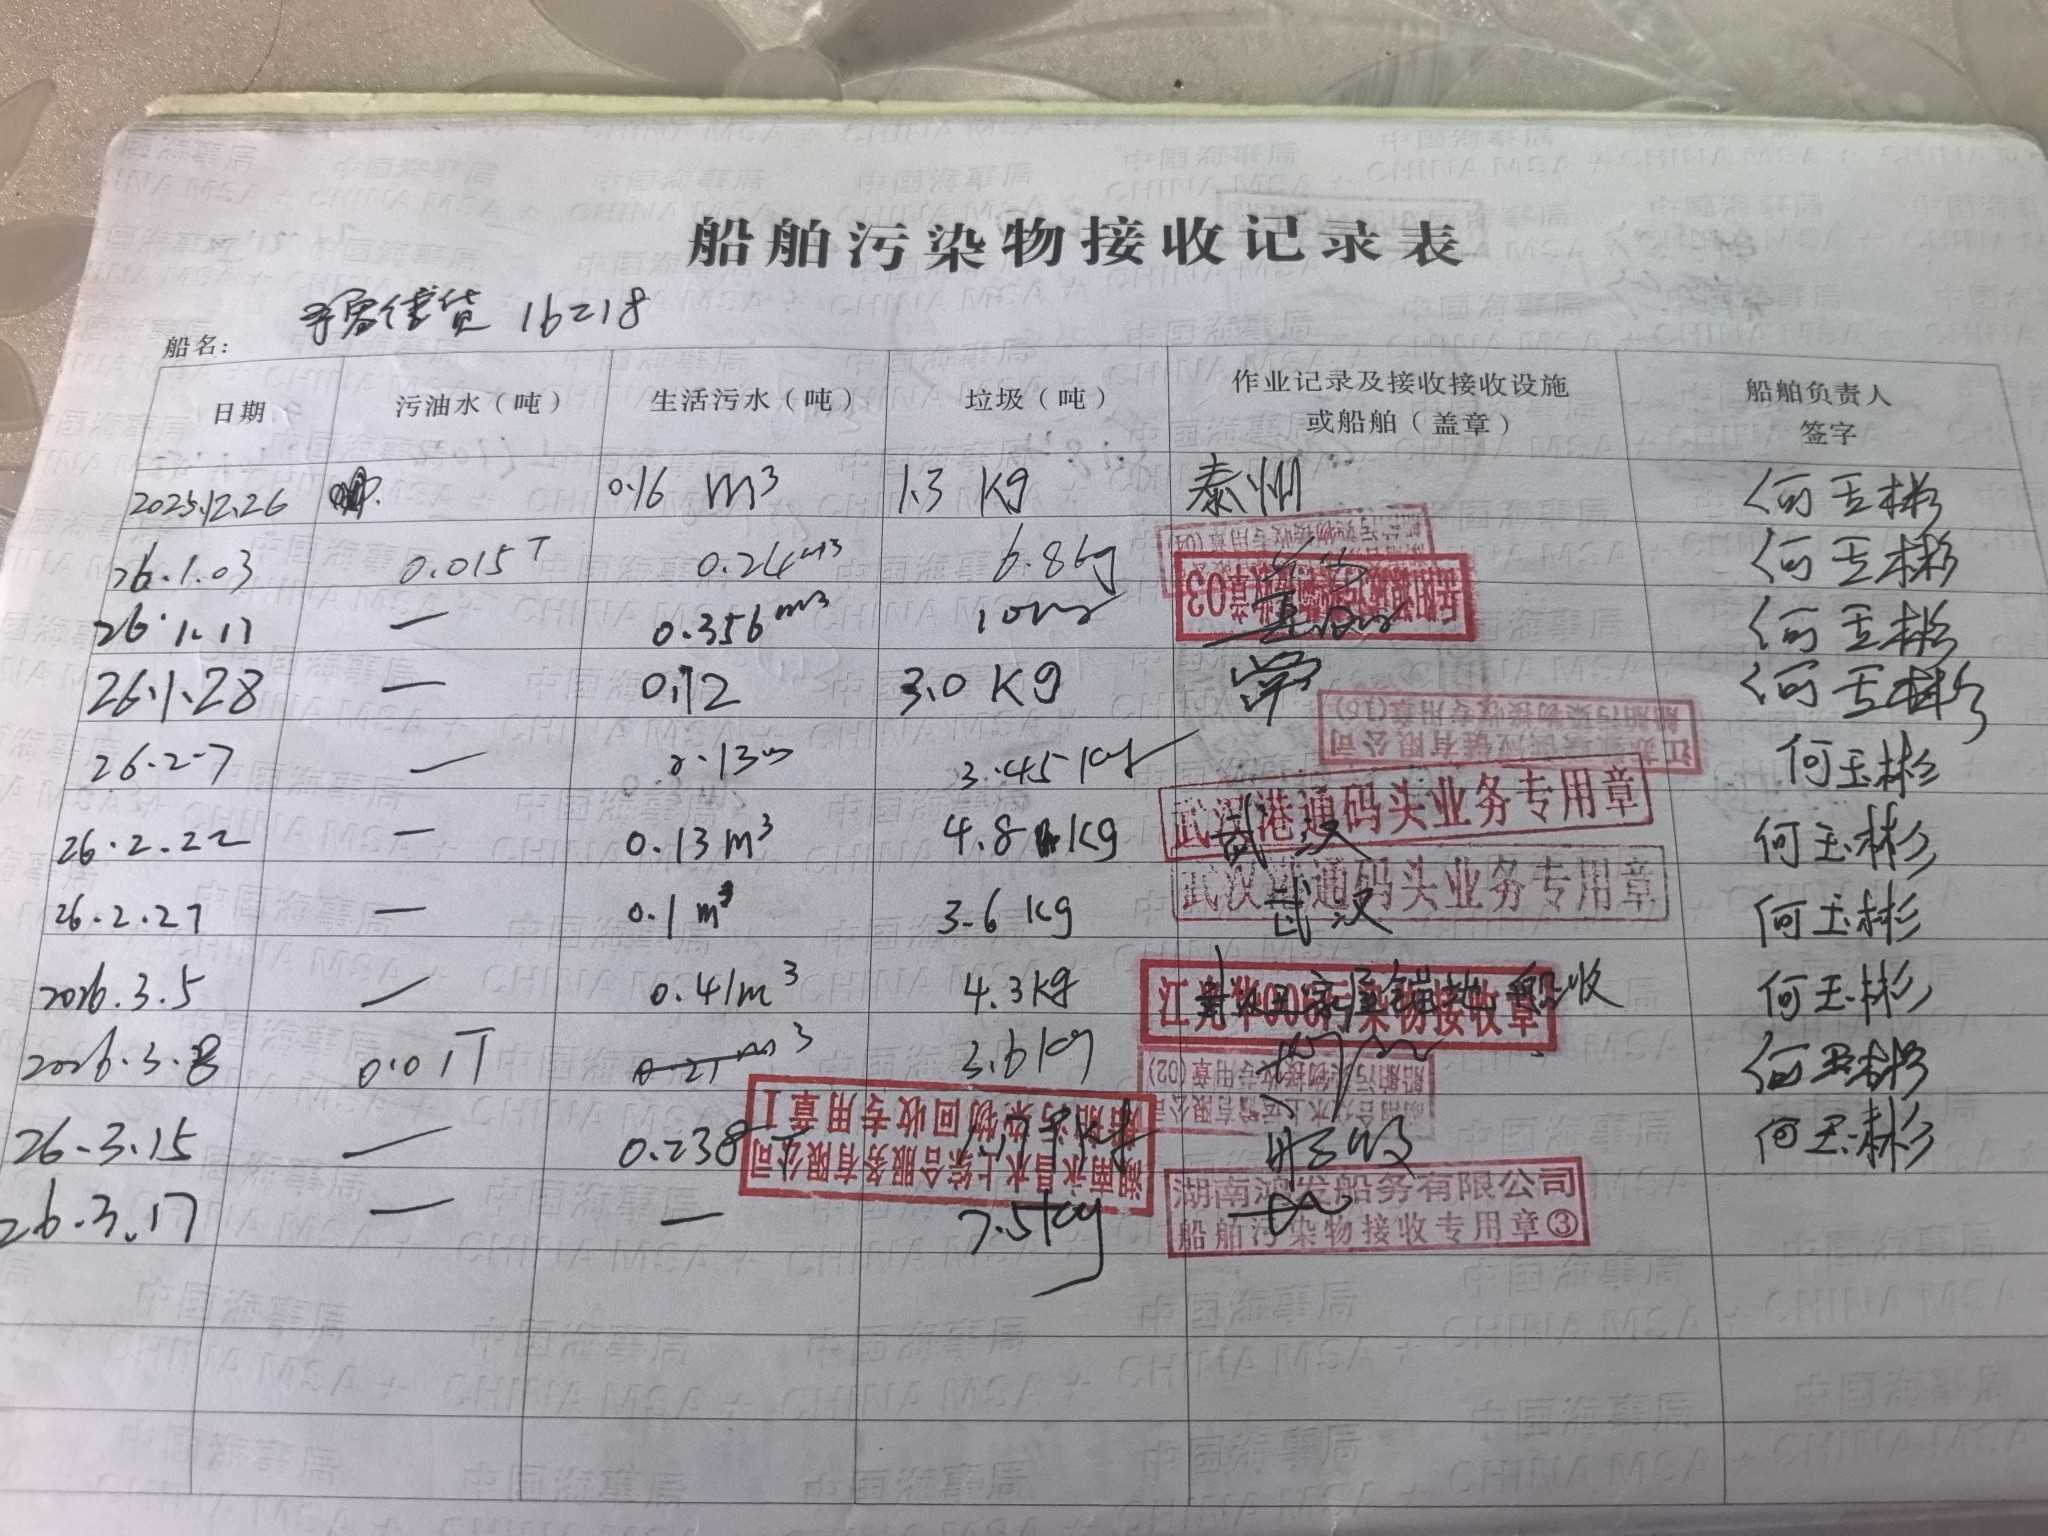 船舶污染物接收记录表
船名: 货 16218
日期 污油水（吨） 生活污水（吨） 垃圾（吨） 作业记录及接收接收设施或船舶（盖章） 船舶负责人签字
2025.12.26 0.16 m³ 1.3 Kg 泰州 何玉彬
26.1.03 0.015T 0.24m³ 6.8kg 何玉彬
26.1.17 — 0.356m³ 何玉彬
26.1.28 — 0.12 3.0 Kg 何玉彬
26.2.7 — 0.13m 3.45Kg 何玉彬
江苏 供应链有限公司
船舶污染物接收专用章(16)
26.2.22 — 0.13m³ 4.8 Kg 武汉 何玉彬
武汉港通码头业务专用章
26.2.27 — 0.1m³ 3.6 Kg 武汉 何玉彬
武汉港通码头业务专用章
2026.3.5 — 0.41m³ 4.3Kg 船收 何玉彬
污染物接收章
2026.3.8 0.01T 0.21m³ 3.6Kg 何玉彬
船舶污染物接收专用章(02)
26.3.15 — 0.238 何玉彬
湖南永昌水上综合服务有限公司
船舶污染物回收专用章1
26.3.17 — — 7.5Kg
湖南鸿发船务有限公司
船舶污染物接收专用章③